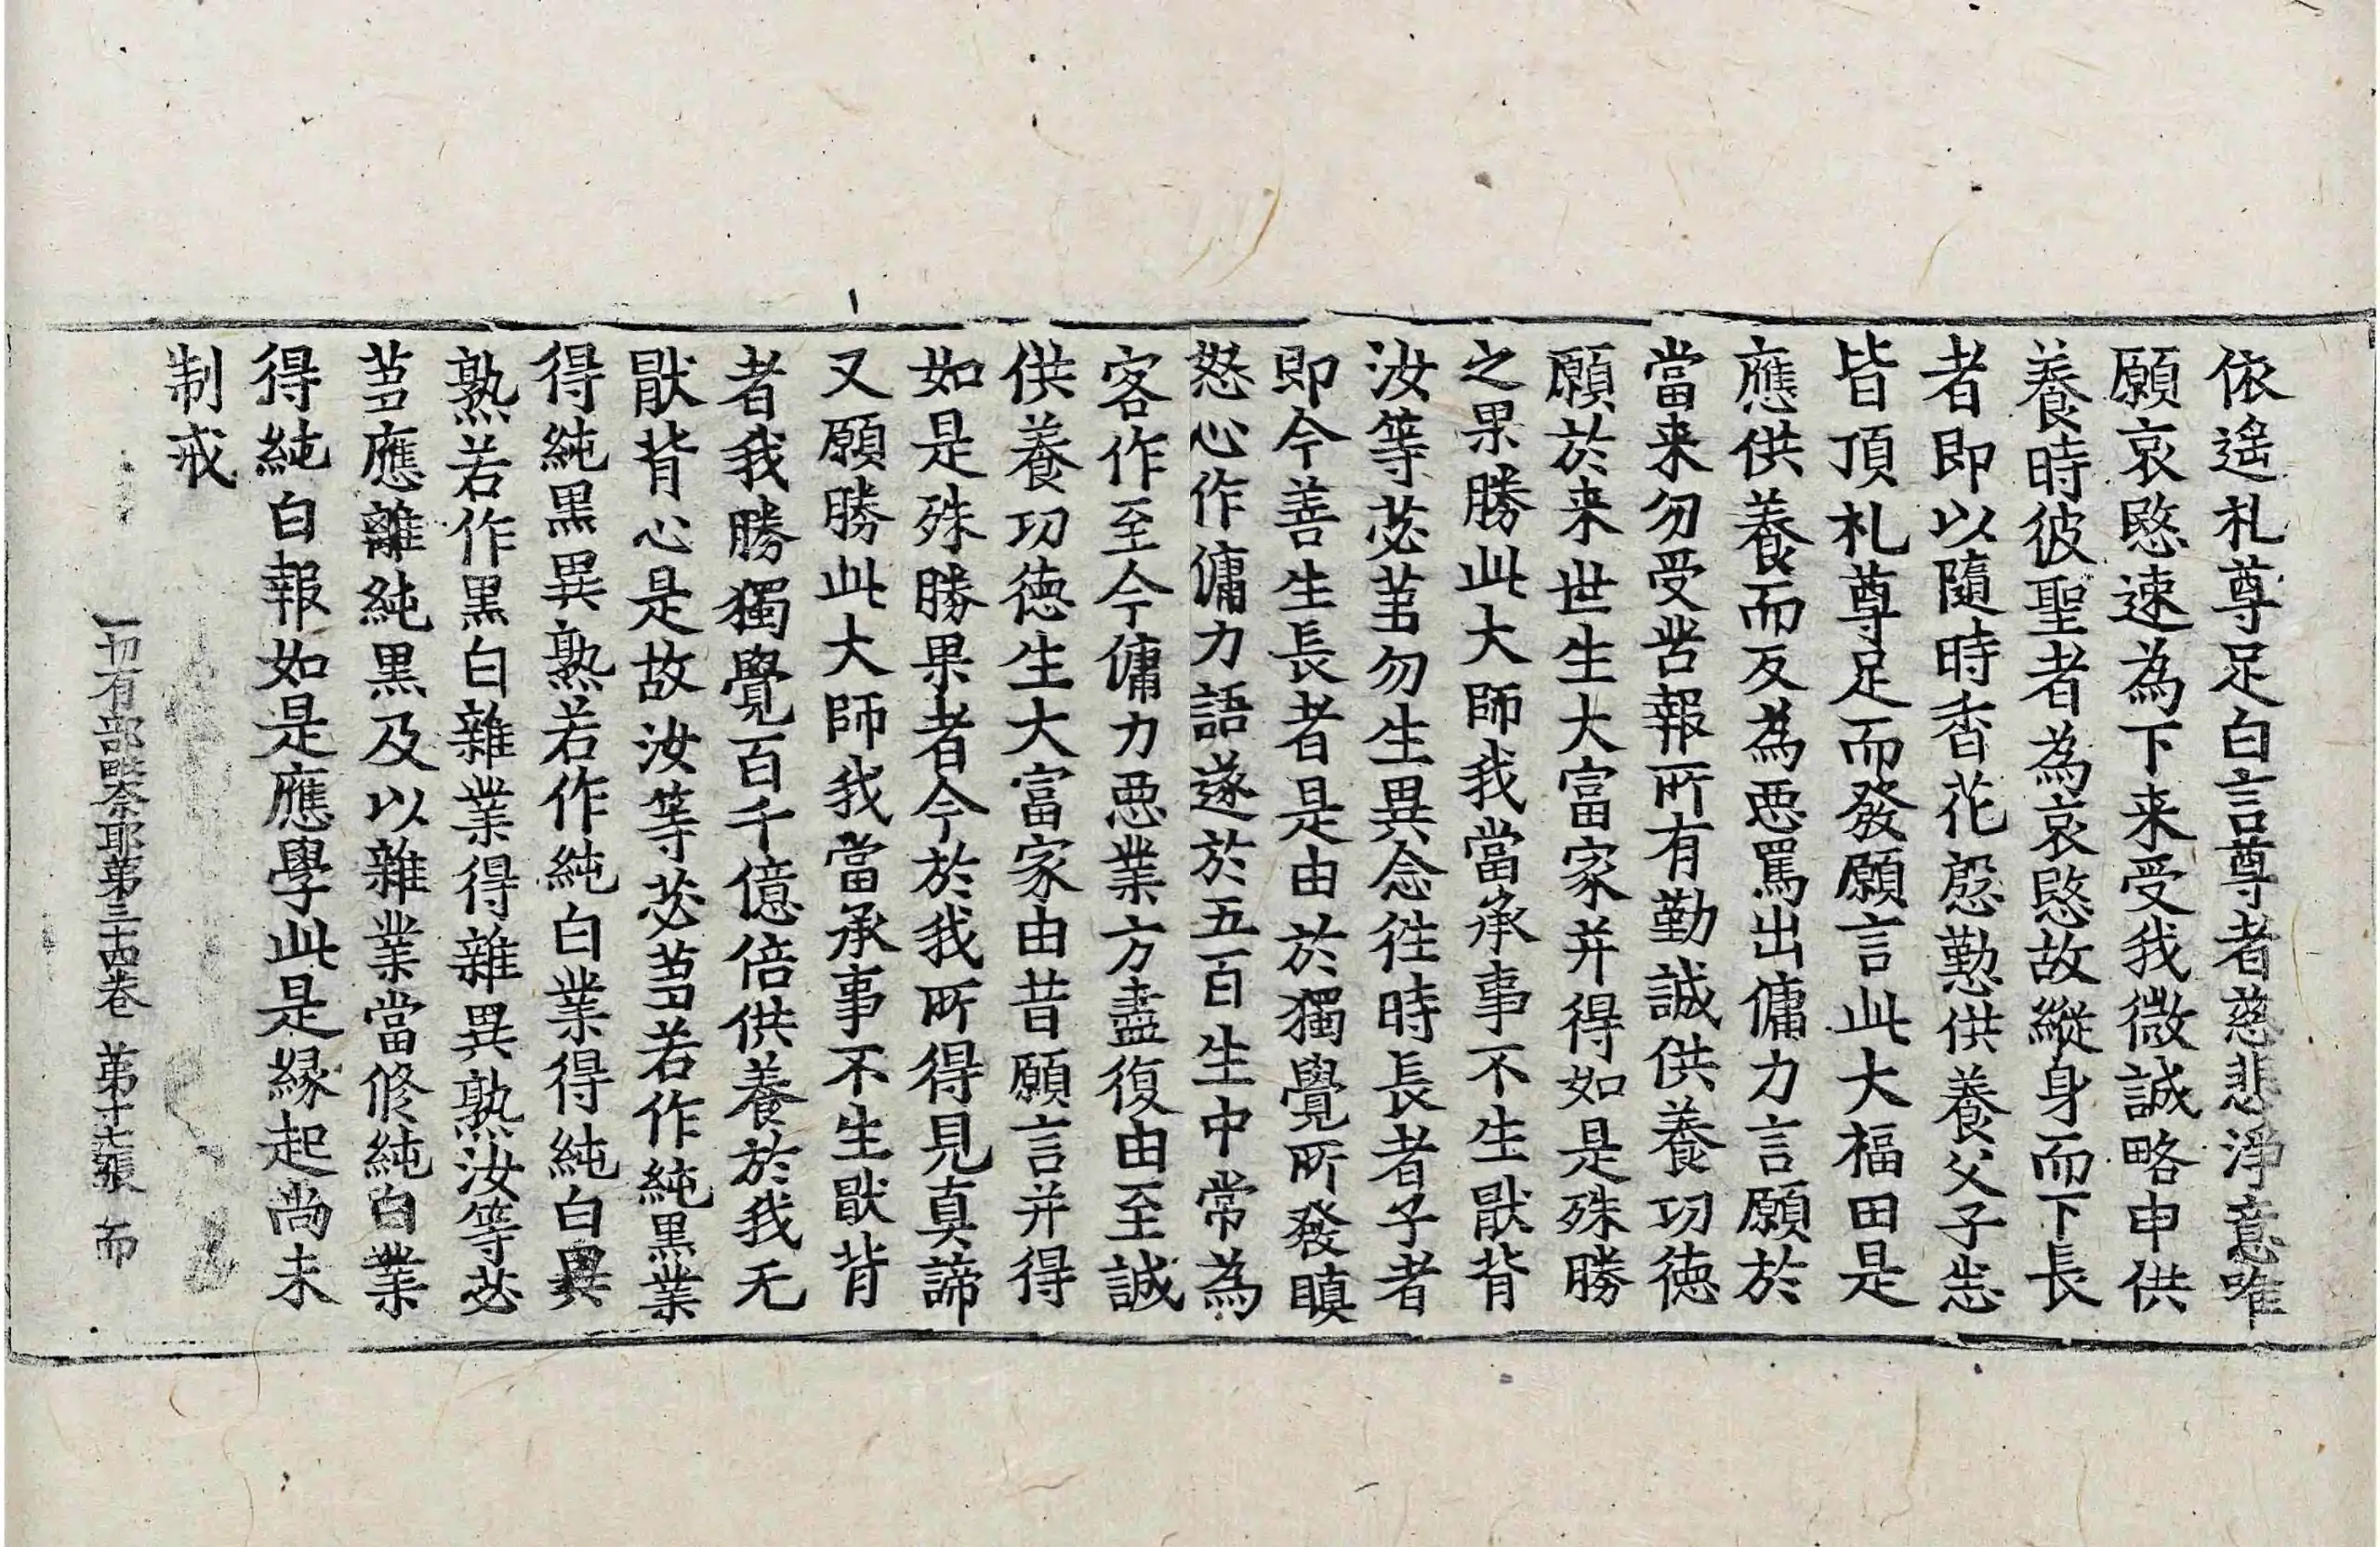 依遙礼尊足白言尊者慈悲淨意唯
願哀愍速為下来受我微誠略申供
養時彼聖者為哀愍故縱身而下長
者即以隨時香花慇懃供養父子悉
皆頂礼尊足而發願言此大福田是
應供養而反為惡罵出傭力言願於
當来勿受苦報所有勤誠供養功德
願於来世生大富家并得如是殊勝
之果勝此大師我當承事不生猒背
汝等苾芻勿生異念往時長者子者
即今善生長者是由於獨覺所發瞋
怒心作傭力語遂於五百生中常為
客作至今傭力惡業方盡復由至誠
供養功德生大富家由昔願言并得
如是殊勝果者今於我所得見真諦
又願勝此大師我當承事不生猒背
者我勝獨覺百千億倍供養於我无
猒背心是故汝等苾芻若作純黑業
得純黑異熟若作純白業得純白異
熟若作黑白雜業得雜異熟汝等苾
芻應離純黑及以雜業當修純白業
得純白報如是應學此是縁起尚未
制戒
一切有部毗奈耶第三十四卷 第十七張 而